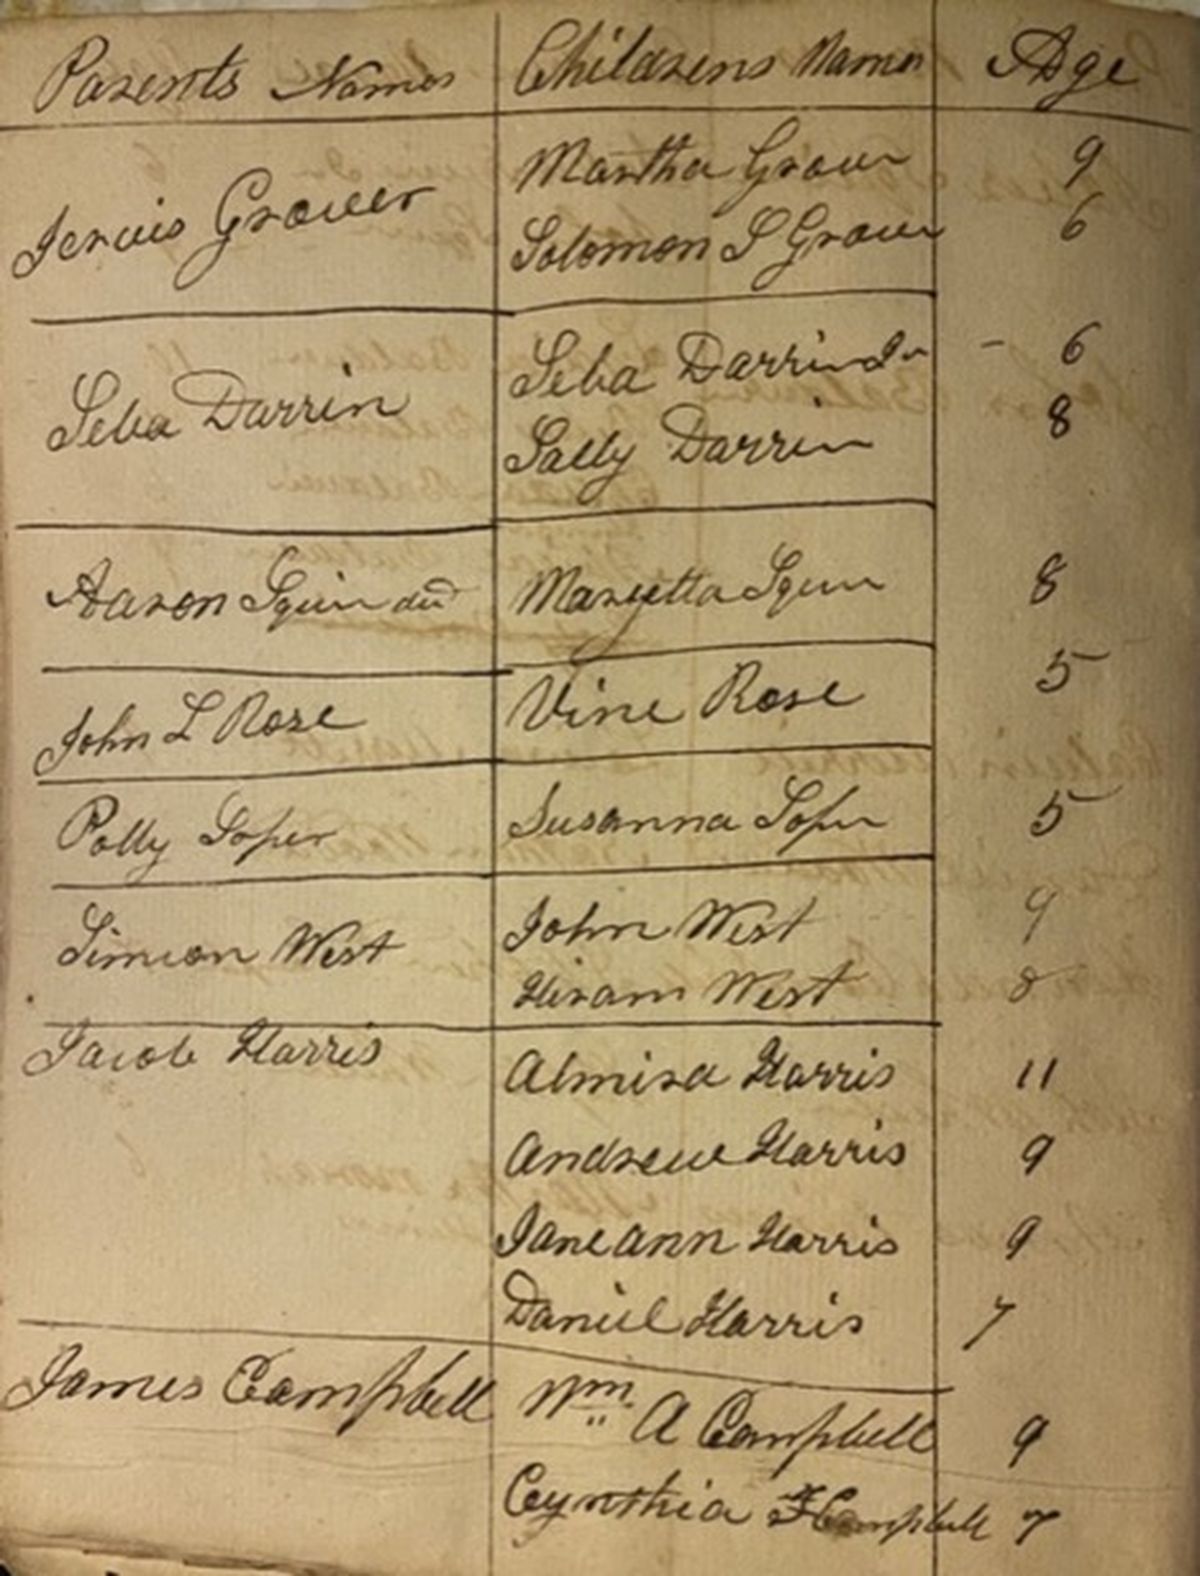 Parents Names Childrens Names Age
Jervis Grover Martha Grover 9
Solomon S Grover 6
Seba Darrin Seba Darrin Jr - 6
Sally Darrin 8
Aaron Squir Maryetta Squir 8
John L Rose Vine Rose 5
Polly Soper Susanna Soper 5
Simeon West John West 9
Hiram West 8
Jacob Harris Almira Harris 11
Andrew Harris 9
Janeann Harris 9
Daniel Harris 7
James Campbell Wm A Campbell 9
Cynthia F Campbell 7